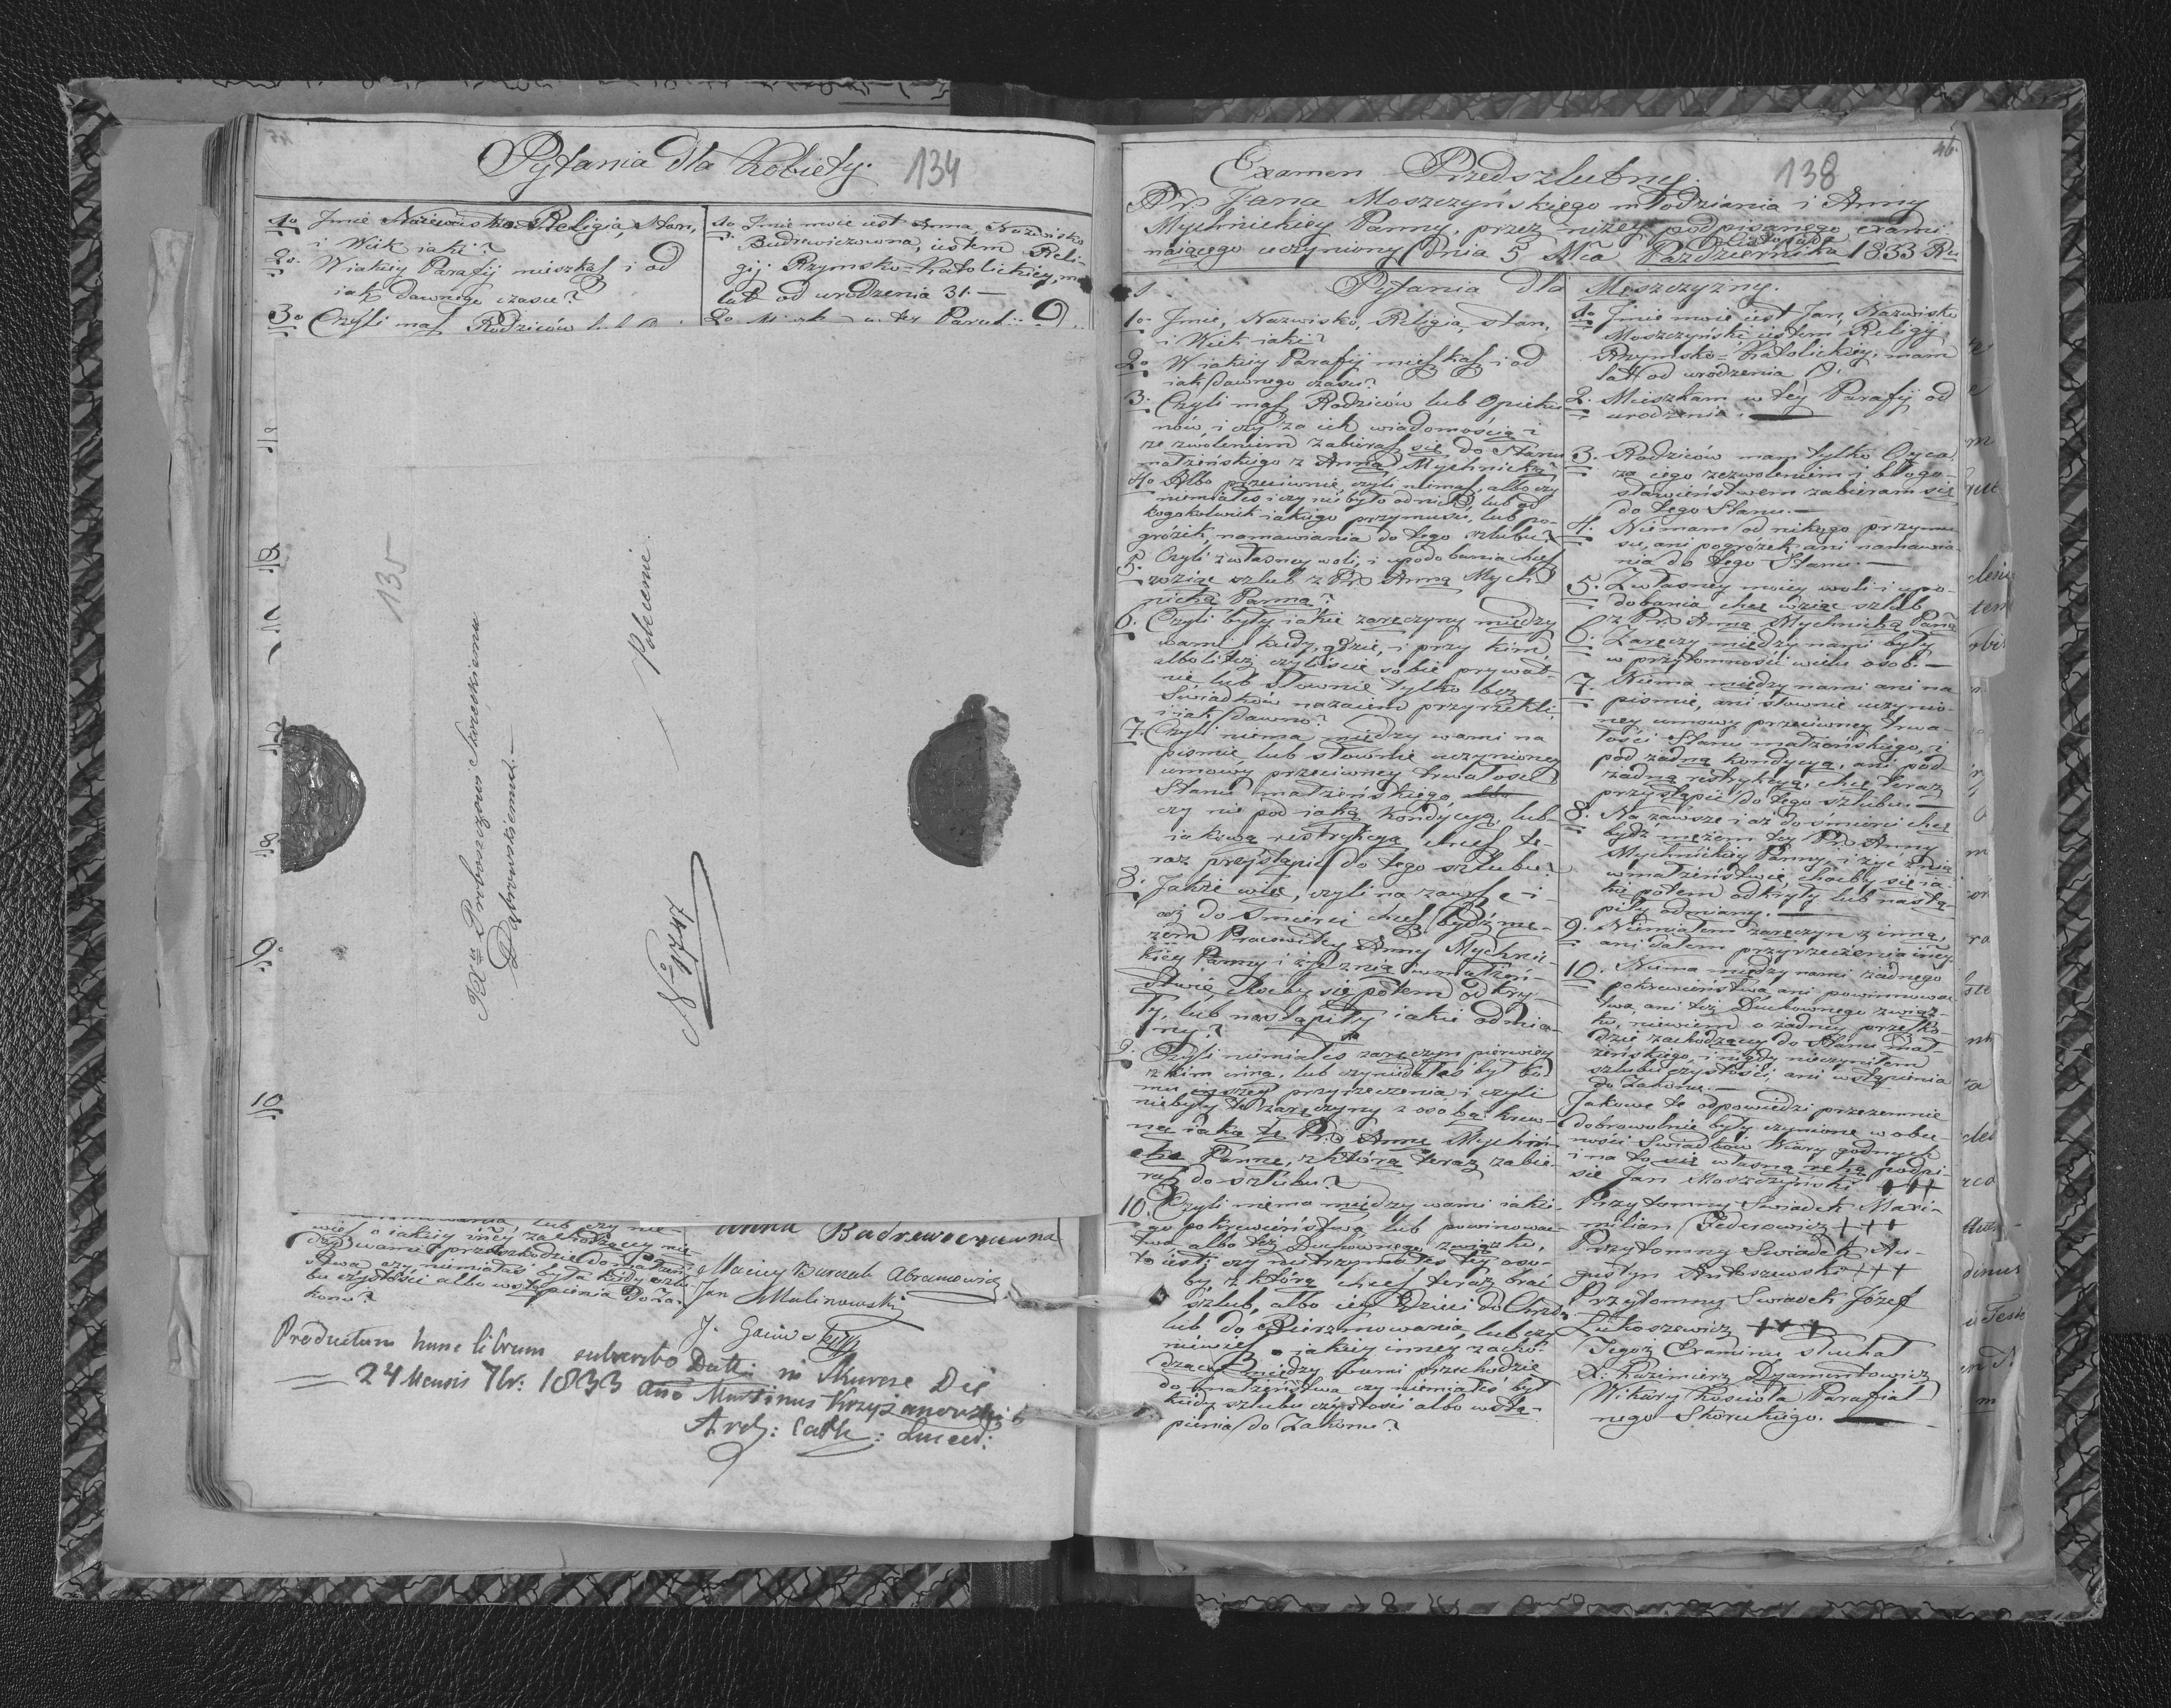 Pytania dla Kobiety.
134
1o Jmie Nazwisko Religia, Stan,
i Wiek iaki?
2o. W iakiey Parafij mieszkasz i od
iak dawnego czasu?
3o Czyli masz Rodziców
1o Jmie moie iest Anna, Nazwisko
Budrewiczowna, iestem Reli-
gij Rzymsko-Katolickiey, mam
lat od urodzenia 31. —
135
Proboszczowi Skureckiemu
Dąbrowskiemu. —
Polecenie.
No 1747
10
wiesz o iakiey iney zachodzącey mie-
dzy wami przeszkodzie do małżeń-
stwa czy niemiałaś była kiedy szlu-
bu czystości albo wstąpienia do Za-
konu?
Anna Budrewiczuwna
Maciey Burzak Abramowicz
Jan Malinowski
Productum hunc librum subscribo Datt: in Skurcze Die
24 Mensis 7br: 1833 Ano Martinus Krzyżanowski
Arch: Cath: Luceo:
46.
Examen Przedszlubny.
138
Pr. Jana Moszczyńskiego młodziana i Anny
Mychnickiey Panny, przez niżey podpisanego exami-
nuiącego uczyniony dnia 5 Mca Listopada Października 1833 Ru
Pytania dla Męszczyzny.
1o. Jmie, Nazwisko, Religia, stan,
i Wiek iaki?
2o W iakiey Parafij mieszkasz i od
iak dawnego czasu?
3. Czyli masz Rodziców lub Opieku-
nów, i czy za ich wiadomością i
ze zwoleniem zabierasz się do Stanu
małżeńskiego z Anną Mychnicką?
4o Albo przeciwnie, czyli niemasz, albo czy
niemiałeś i czy nie było od nich lub od
kogokolwiek iakiego przymusu, lub po-
gróżek, namawiania do tego szlubu?
5. Czyli z własney woli, i upodobania chcesz
wziąc szlub z Pr. Anną Mych-
nicką Panną?
6. Czyli były iakie zaręczyny między
wami kiedy, gdzie, i przy kim,
albo li też czyliscie sobie prywat-
nie lub słownie tylko bez
Swiadków nazaiem przyrzekli,
i iak dawno?
7. Czyli niema między wami na
pismie, lub słownie uczynioney
umowy przeciwney trwałosci
Stanu małżeńskiego,
czy nie pod iaką Kondycyą, lub
iakową restrykcyą chcesz te-
raz przystąpić do tego szlubu?
8. Jakże więc, czyli na zawsze i
aż do śmierci chcesz bydź mę-
żem Pracowitey Anny Mychnic-
kiey Panny i żyć z nią w małżeń-
stwie choćby się potem odkry-
ły, lub nastąpiły iakie odmia-
ny?
9. Czyli niemiałes zaręczyn pierwiey
z kim inną, lub czynidałeś był ko-
mu inszey przyrzeczenia i czyli
niebyły te zaręczyny z osobą krew-
ną iaką tę Pr. Annę Mychni-
cką Pannę, z którą teraz zabie-
rasz do szlubu?
10. Czyli niema między wami iakie-
go pokrewieństwa lub powinowac-
twa albo też Duchownego związku,
to iest: czy nietrzymałeś tey oso-
by z którą chcesz teraz brać
szlub, albo iey Dzieci do Chrztu
lub do Bierzmowania, lub czy
niewiesz o iakiey inney zacho-
dzącey między wami przeszkodzie
do małżeństwa czy niemiałeś był
kiedy szlubu czystości albo wstą-
pienia do Zakonu?
1o Jmie moie iest Jan, Nazwisko
Moszczyński, iestem Religij
Rzymsko-Katolickiey, mam
lat od urodzenia 19.
2. Mieszkam w tey Parafij od
urodzenia. —
3. Rodziców mam tylko Oyca,
za iego zezwoleniem i błogo-
sławieństwem zabieram się
do tego Stanu. —
4. Niemam od nikogo przymu-
su, ani pogróżek, ani namawia-
nia do tego Stanu. —
5. Z własney moiey woli i upo-
dobania chcę wziąć szlub
z Pr. Anną Mychnicką Paną
6. Zaręczy między nami były
w przytomności wielu osob. —
7. Niema między nami ani na
pismie, ani słownie uczynio-
ney umowy przeciwney trwa-
łości Stanu małżeńskiego, i
pod żadną kondycyą, ani pod
żadną restrykcyą, chcę teraz
przystąpić do tego szlubu. —
8. Na zawsze i aż do śmierci chcę
bydź mężem tey Pr. Anny
Mychnickiey Panny, i żyć z nią
w małżeństwie, choćby się ia-
kie potem odkryły lub nastą-
piły odmiany. —
9. Niemiałem zaręczyn z inną,
ani dałem przyrzeczenia iney
10. Niema między nami żadnego
pokrewieństwa ani powinowac-
twa, ani też Duchownego związ-
ku, niewiem o żadney przeszko-
dzie zachodzącey do Stanu mał-
żeńskiego, i nigdy nieczyniłem
szlubu czystości, ani wstąpienia
do Zakonu. —
Jakowe te odpowiedzi przezemnie
dobrowolnie były czynione w obec-
ności Swiadków Wiary godnych
i na to się własną ręką podpi-
sie Jan Moszczyński +++
Przytomny Swiadek Maxi-
milian Federowicz +++
Przytomny Swiadek Au-
gustyn Antoszewski +++
Przytomny Swiadek Józef
Łukoszewicz +++
Tegoż Examinu słuchał
X. Kazimierz Dyamentowicz
Wikary Kościoła Parafial-
nego Skoreckiego. —